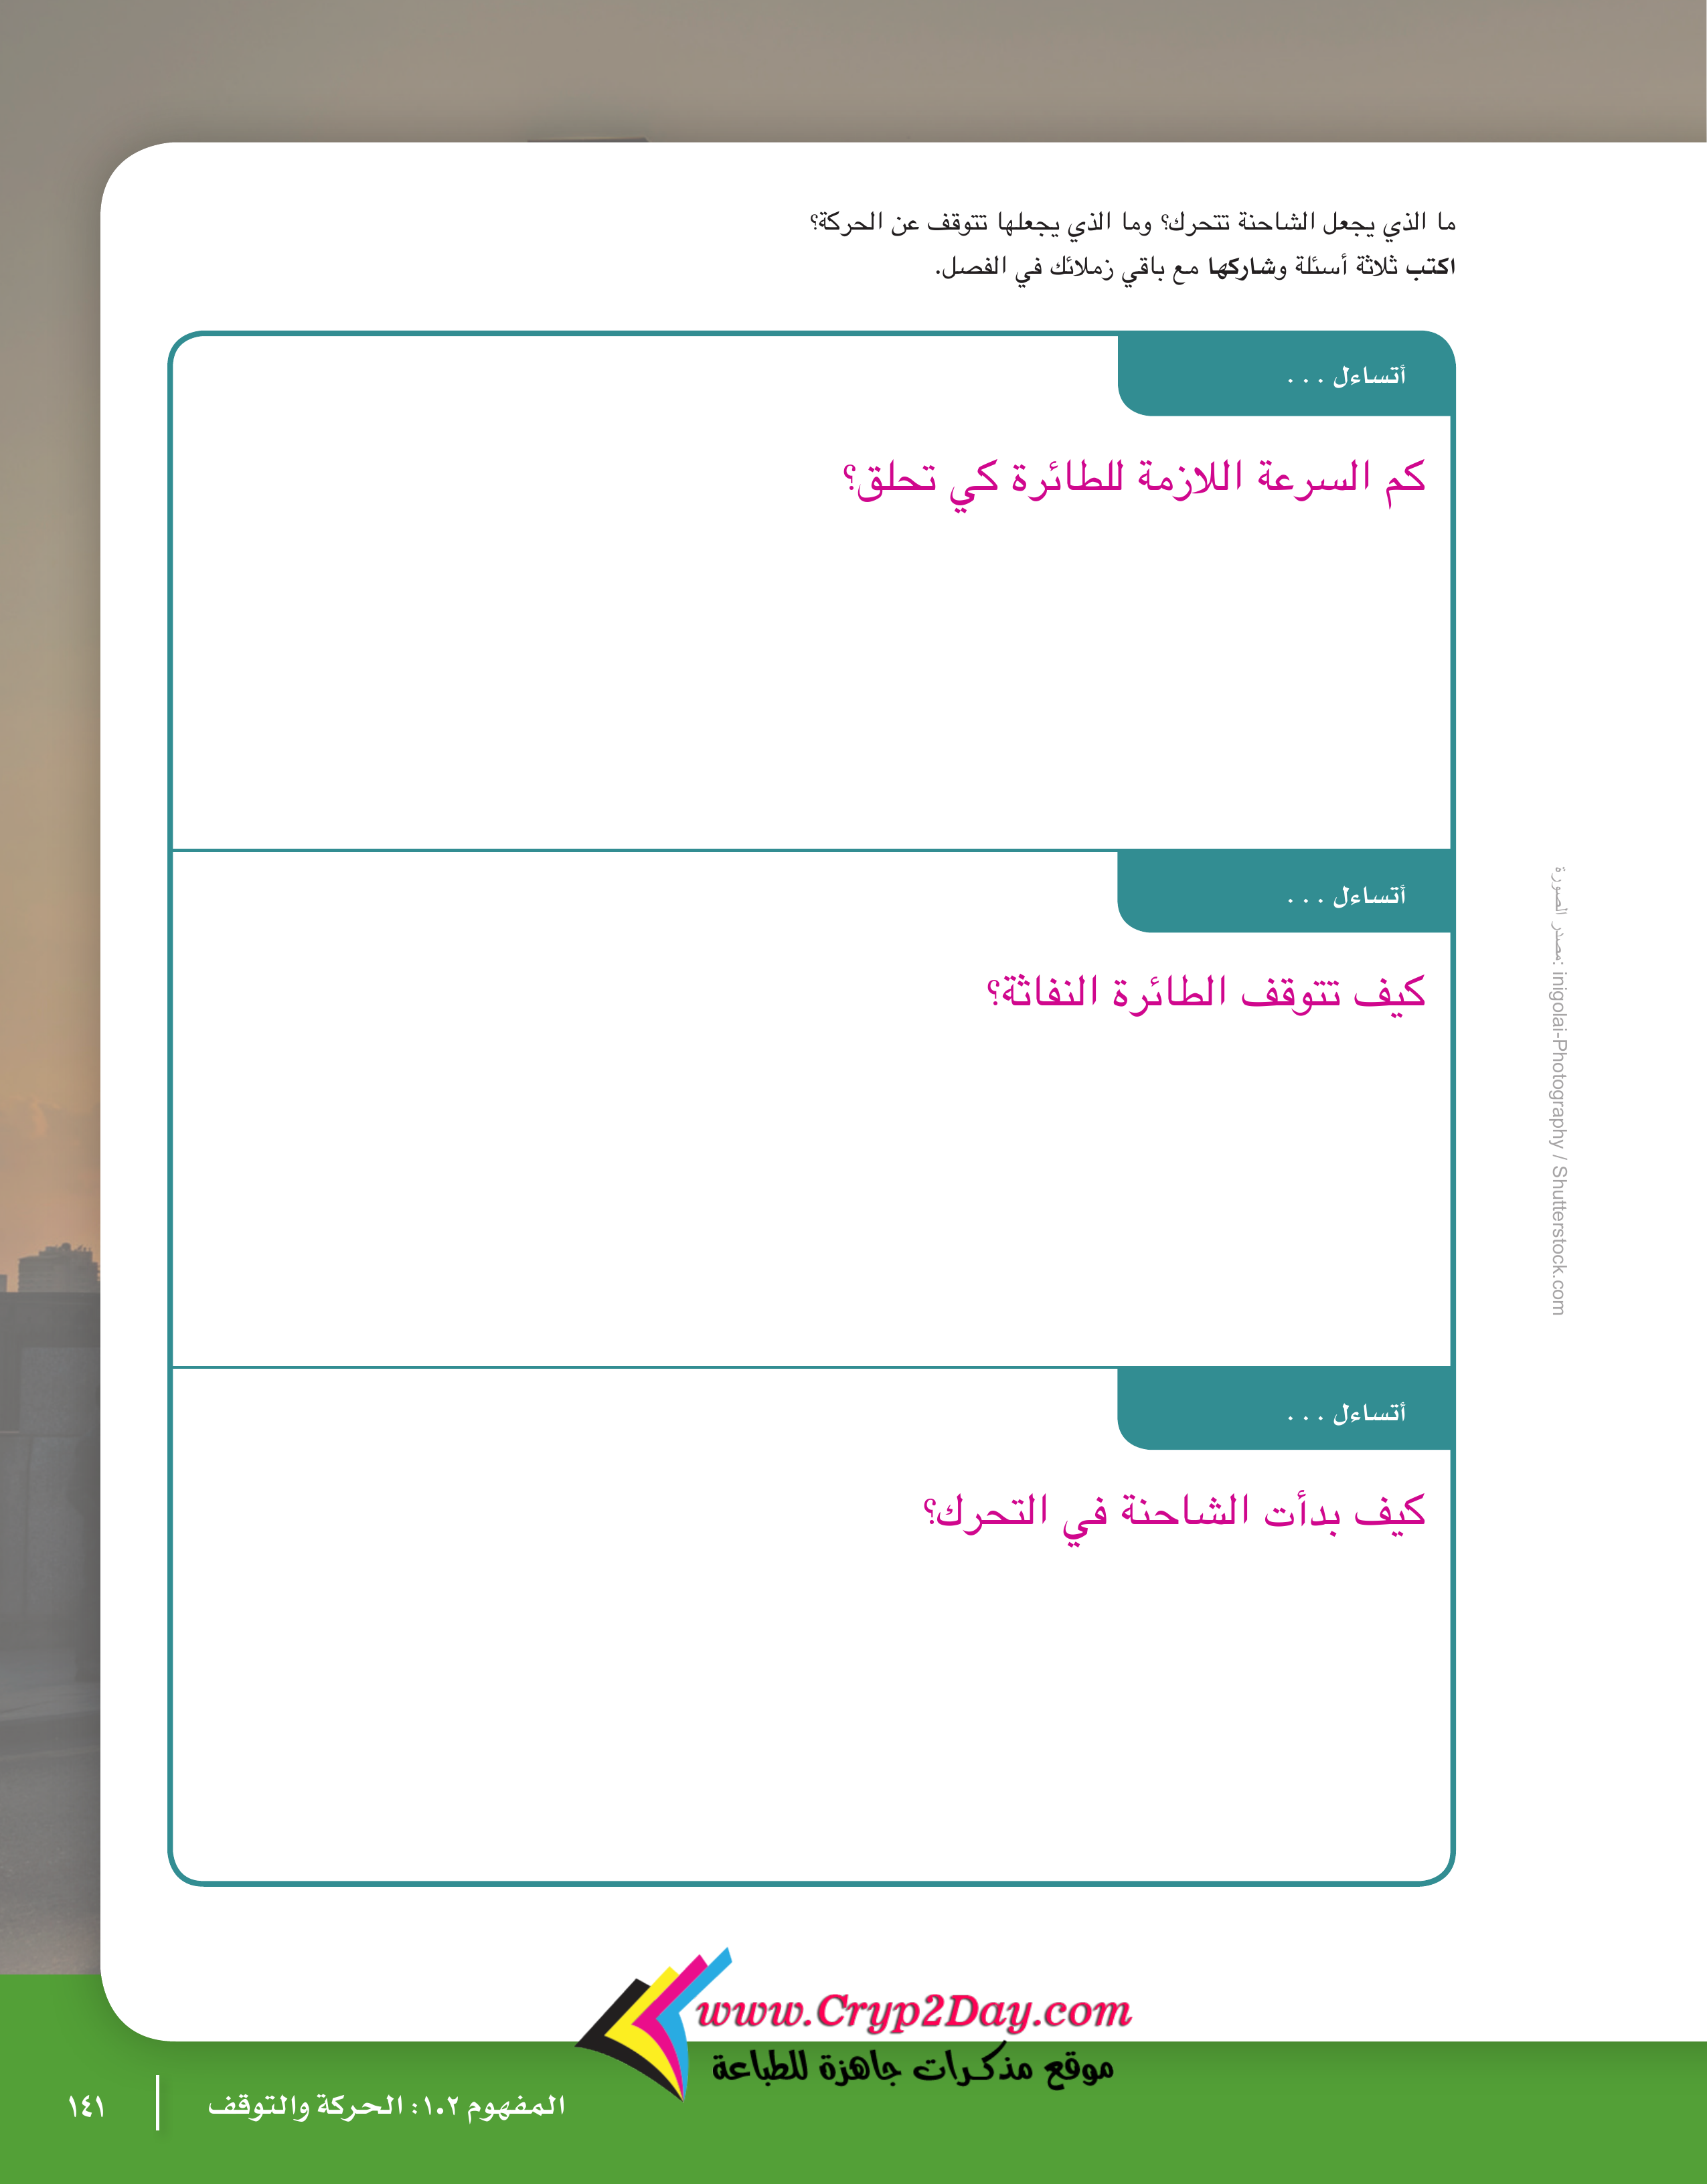 ما الذي يجعل الشاحنة تتحرك؟ وما الذي يجعلها تتوقف عن الحركة؟
اكتب ثلاثة أسئلة وشاركها مع باقي زملائك في الفصل.
أتساءل . . .
كم السرعة اللازمة للطائرة كي تحلق؟
أتساءل . . .
كيف تتوقف الطائرة النفاثة؟
أتساءل . . .
كيف بدأت الشاحنة في التحرك؟
مصدر الصورة: inigolai-Photography / Shutterstock.com
www.Cryp2Day.com
موقع مذكرات جاهزة للطباعة
المفهوم ١.٢: الحركة والتوقف
١٤١